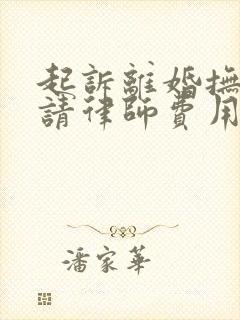 起訴離婚撫
請律師費用
潘家華